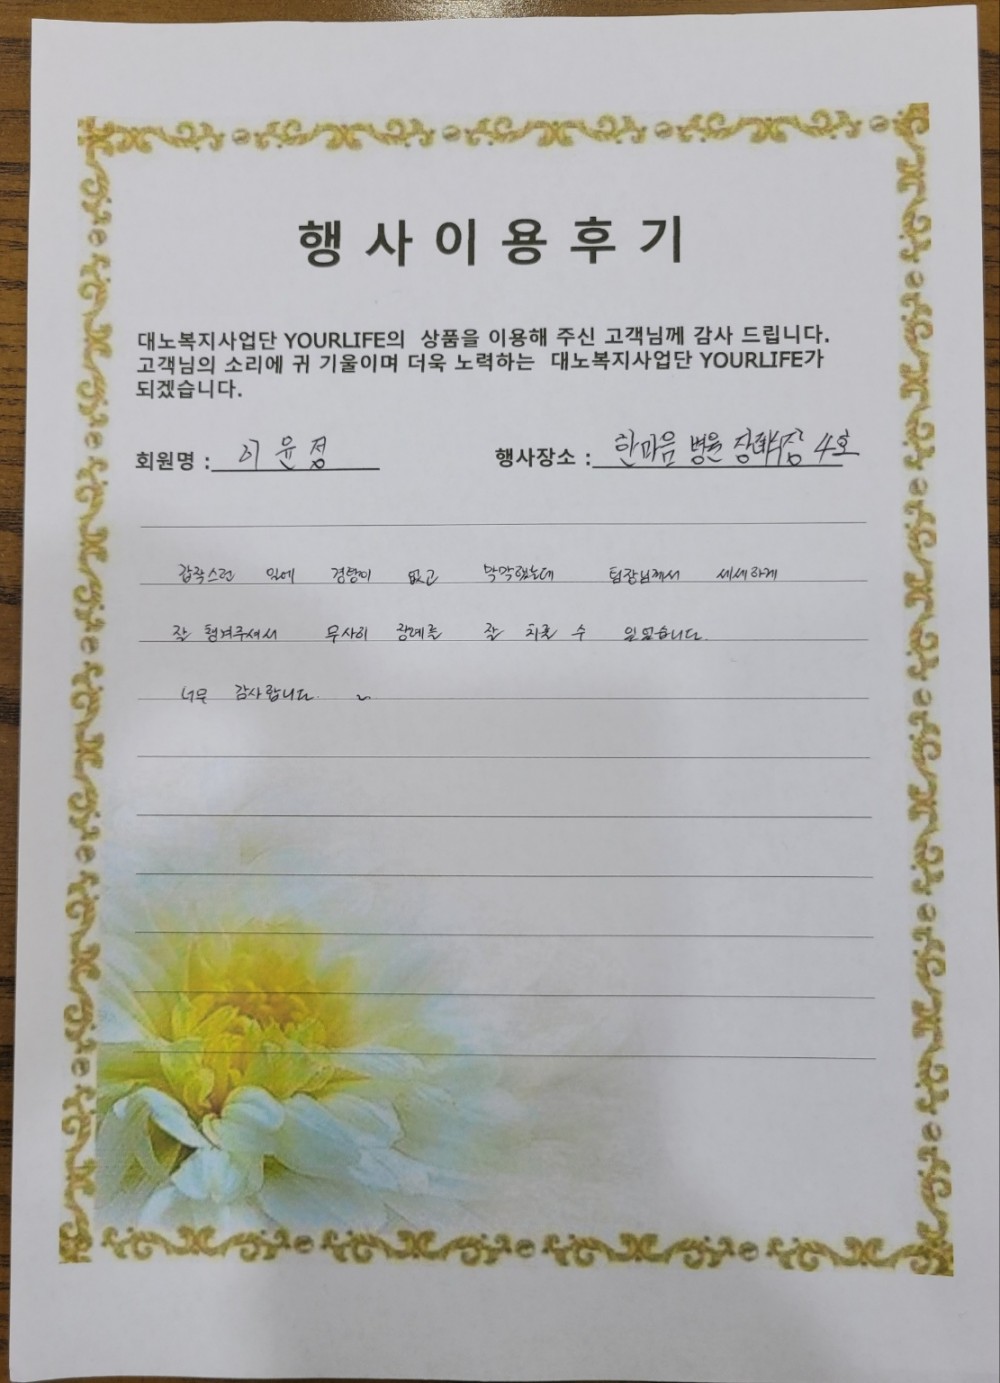 행사이용후기
대노복지사업단 YOURLIFE의 상품을 이용해 주신 고객님께 감사 드립니다.
고객님의 소리에 귀 기울이며 더욱 노력하는 대노복지사업단 YOURLIFE가
되겠습니다.
회원명 : 이윤정 행사장소 : 한마음 병원 장례식장 4호
갑작스런 일에 경험이 없고 막막했는데 팀장님께서 세세하게
잘 챙겨주셔서 무사히 장례를 잘 치를 수 있었습니다.
너무 감사합니다.